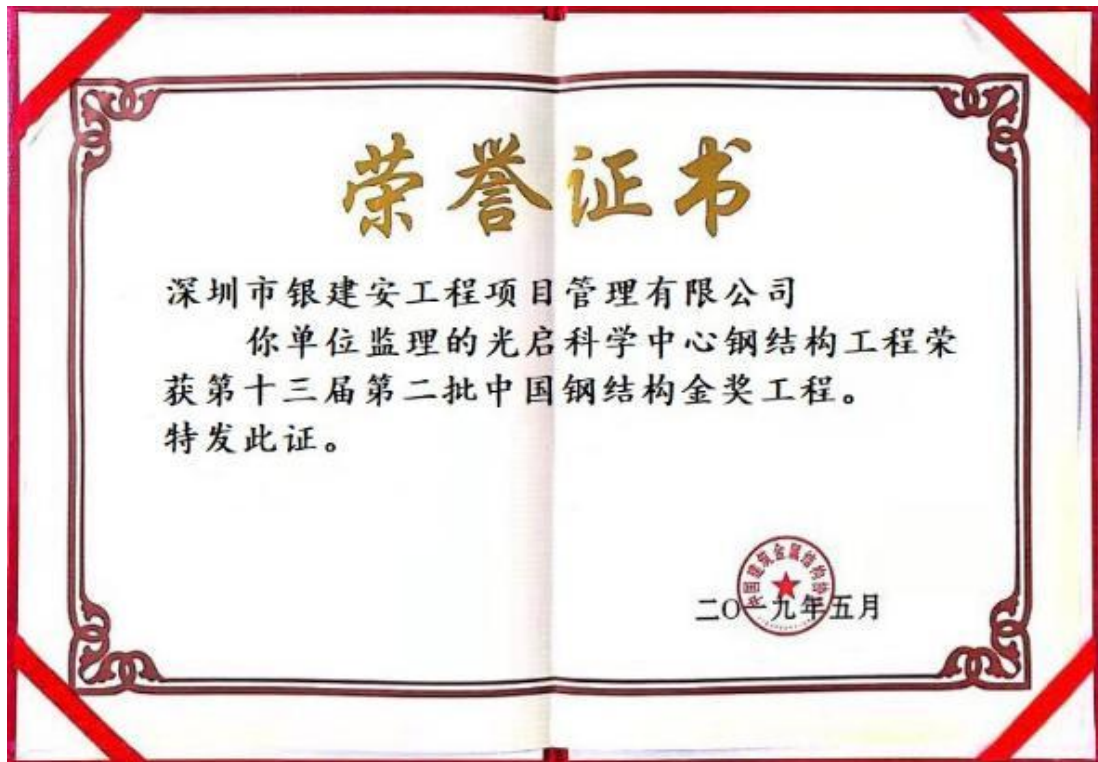 荣誉证书
深圳市银建安工程项目管理有限公司
你单位监理的光启科学中心钢结构工程荣
获第十三届第二批中国钢结构金奖工程。
特发此证。
中国建筑金属结构协会
二〇一九年五月